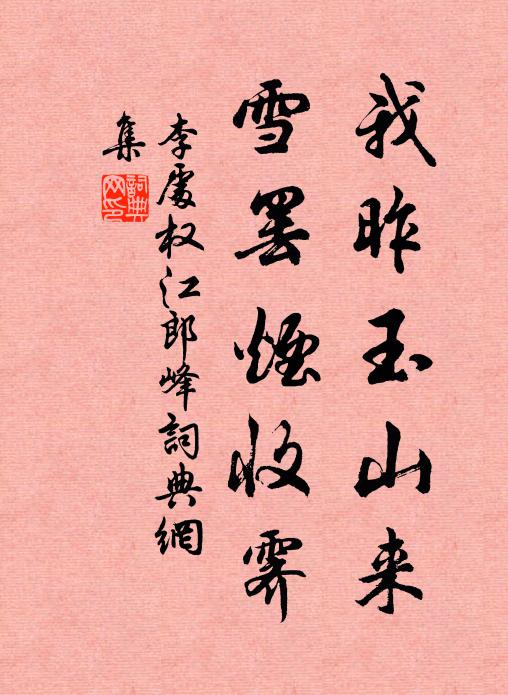 我昨玉山来
雪罢煙收霽
李處权江郎峰詞典網
集
詞典
网印